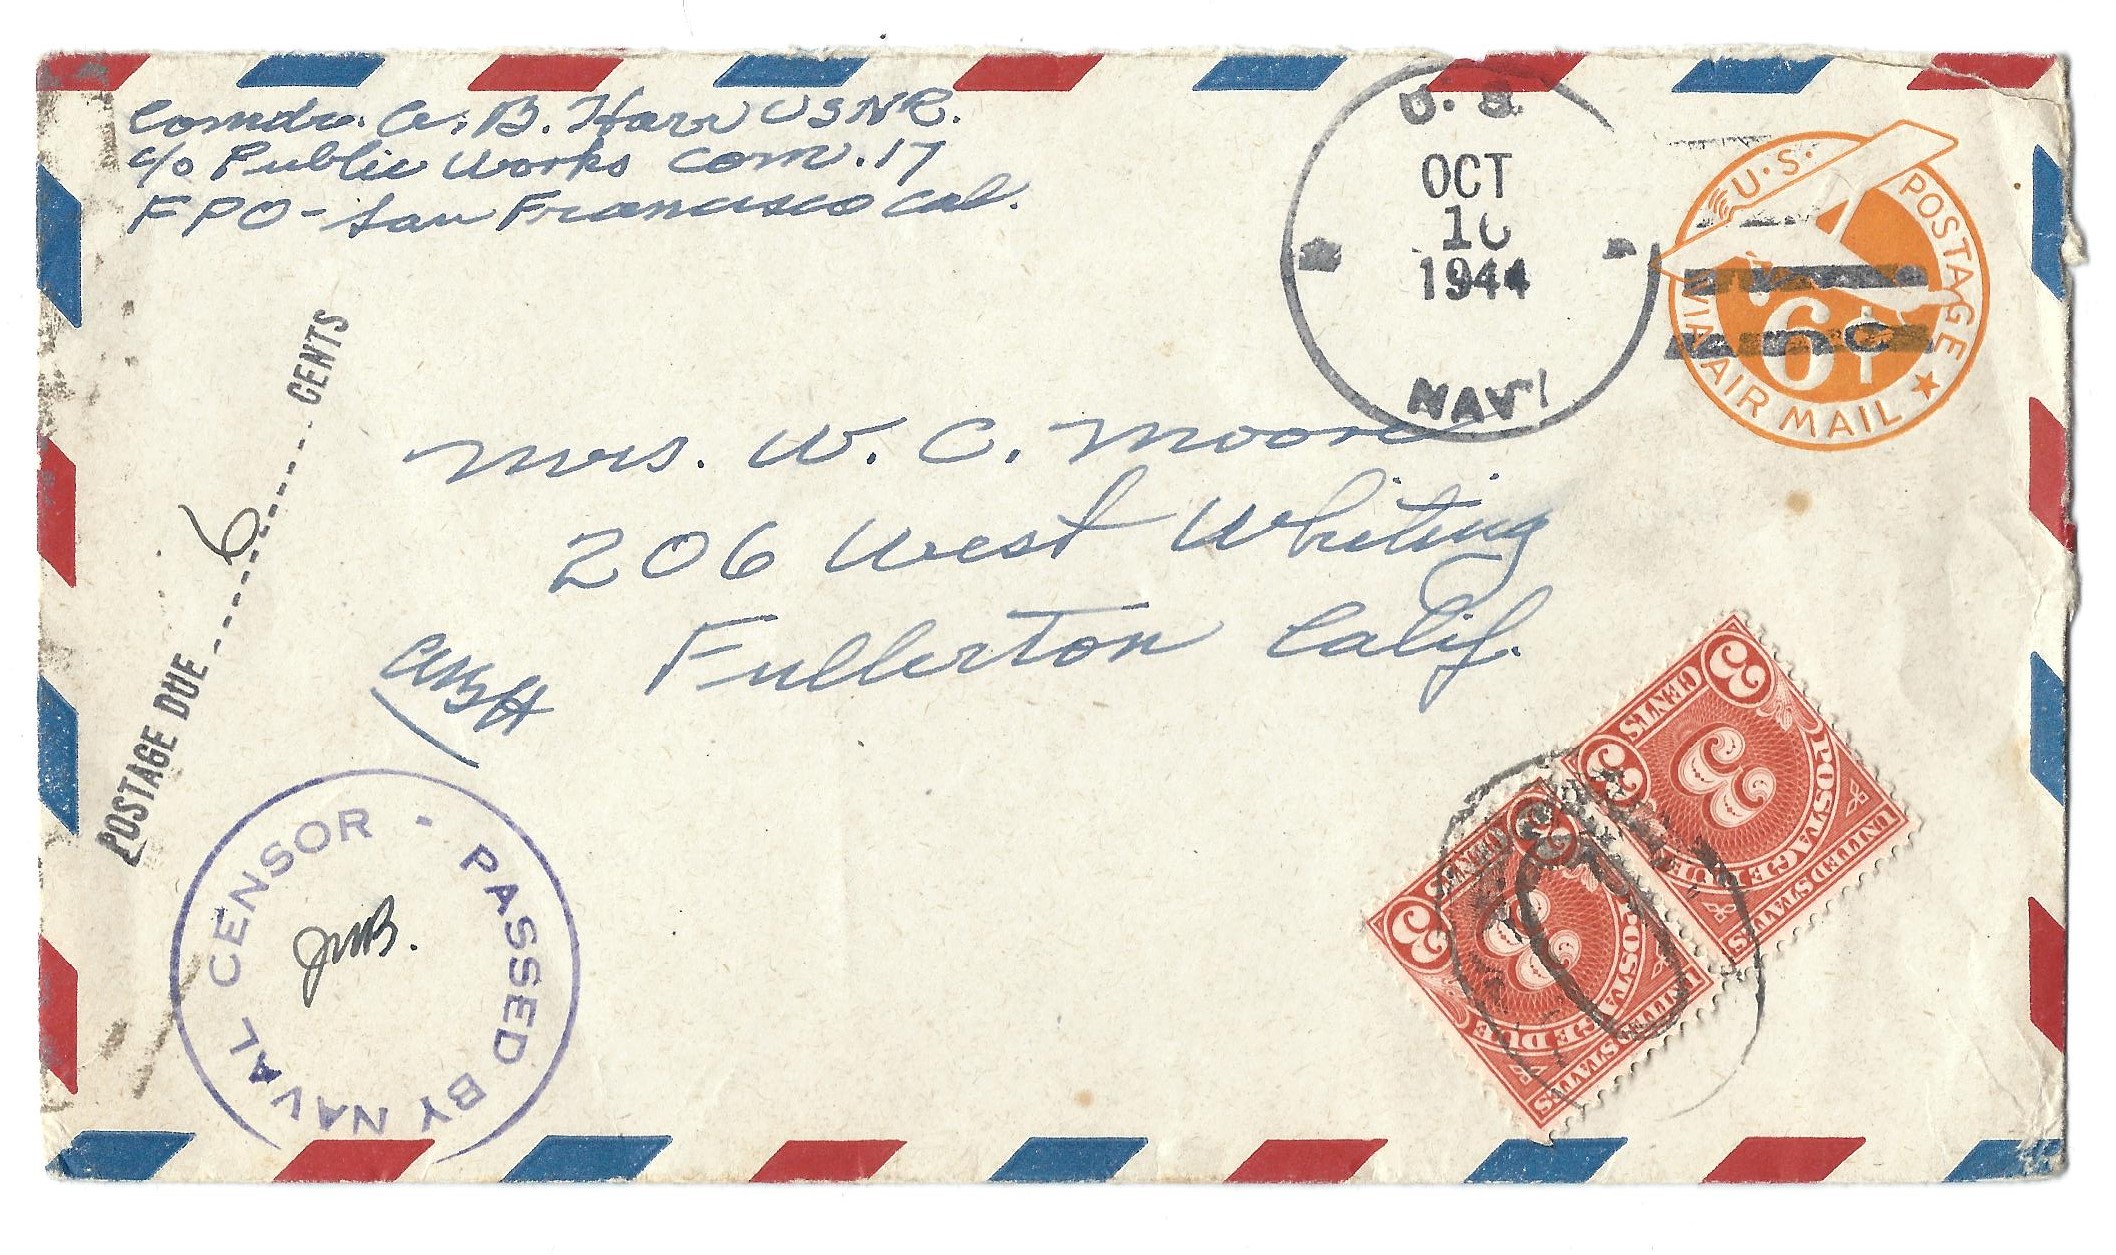 Comdr. A. B. Harr USNR.
c/o Public Works Com. 17
FPO - San Francisco Cal.
U. S.
OCT
10
1944
NAVY
U.S. POSTAGE
6¢
VIA AIR MAIL
POSTAGE DUE 6 CENTS
Mrs. W. C. Moore
206 West Whiting
Fullerton Calif.
ABH
PASSED BY NAVAL CENSOR
JMB.
3 CENTS 3
3
POSTAGE DUE
UNITED STATES
3 CENTS 3
3
POSTAGE DUE
UNITED STATES